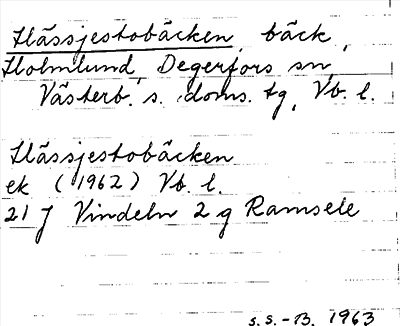 Hässjestobäcken, bäck,
Holmlund, Degerfors sn,
Västerb. s. doms. tg, Vb. l.
Hässjestobäcken
ek (1962) Vb. l.
21 J Vindeln 2 g Ramsele
S.S.-B. 1963